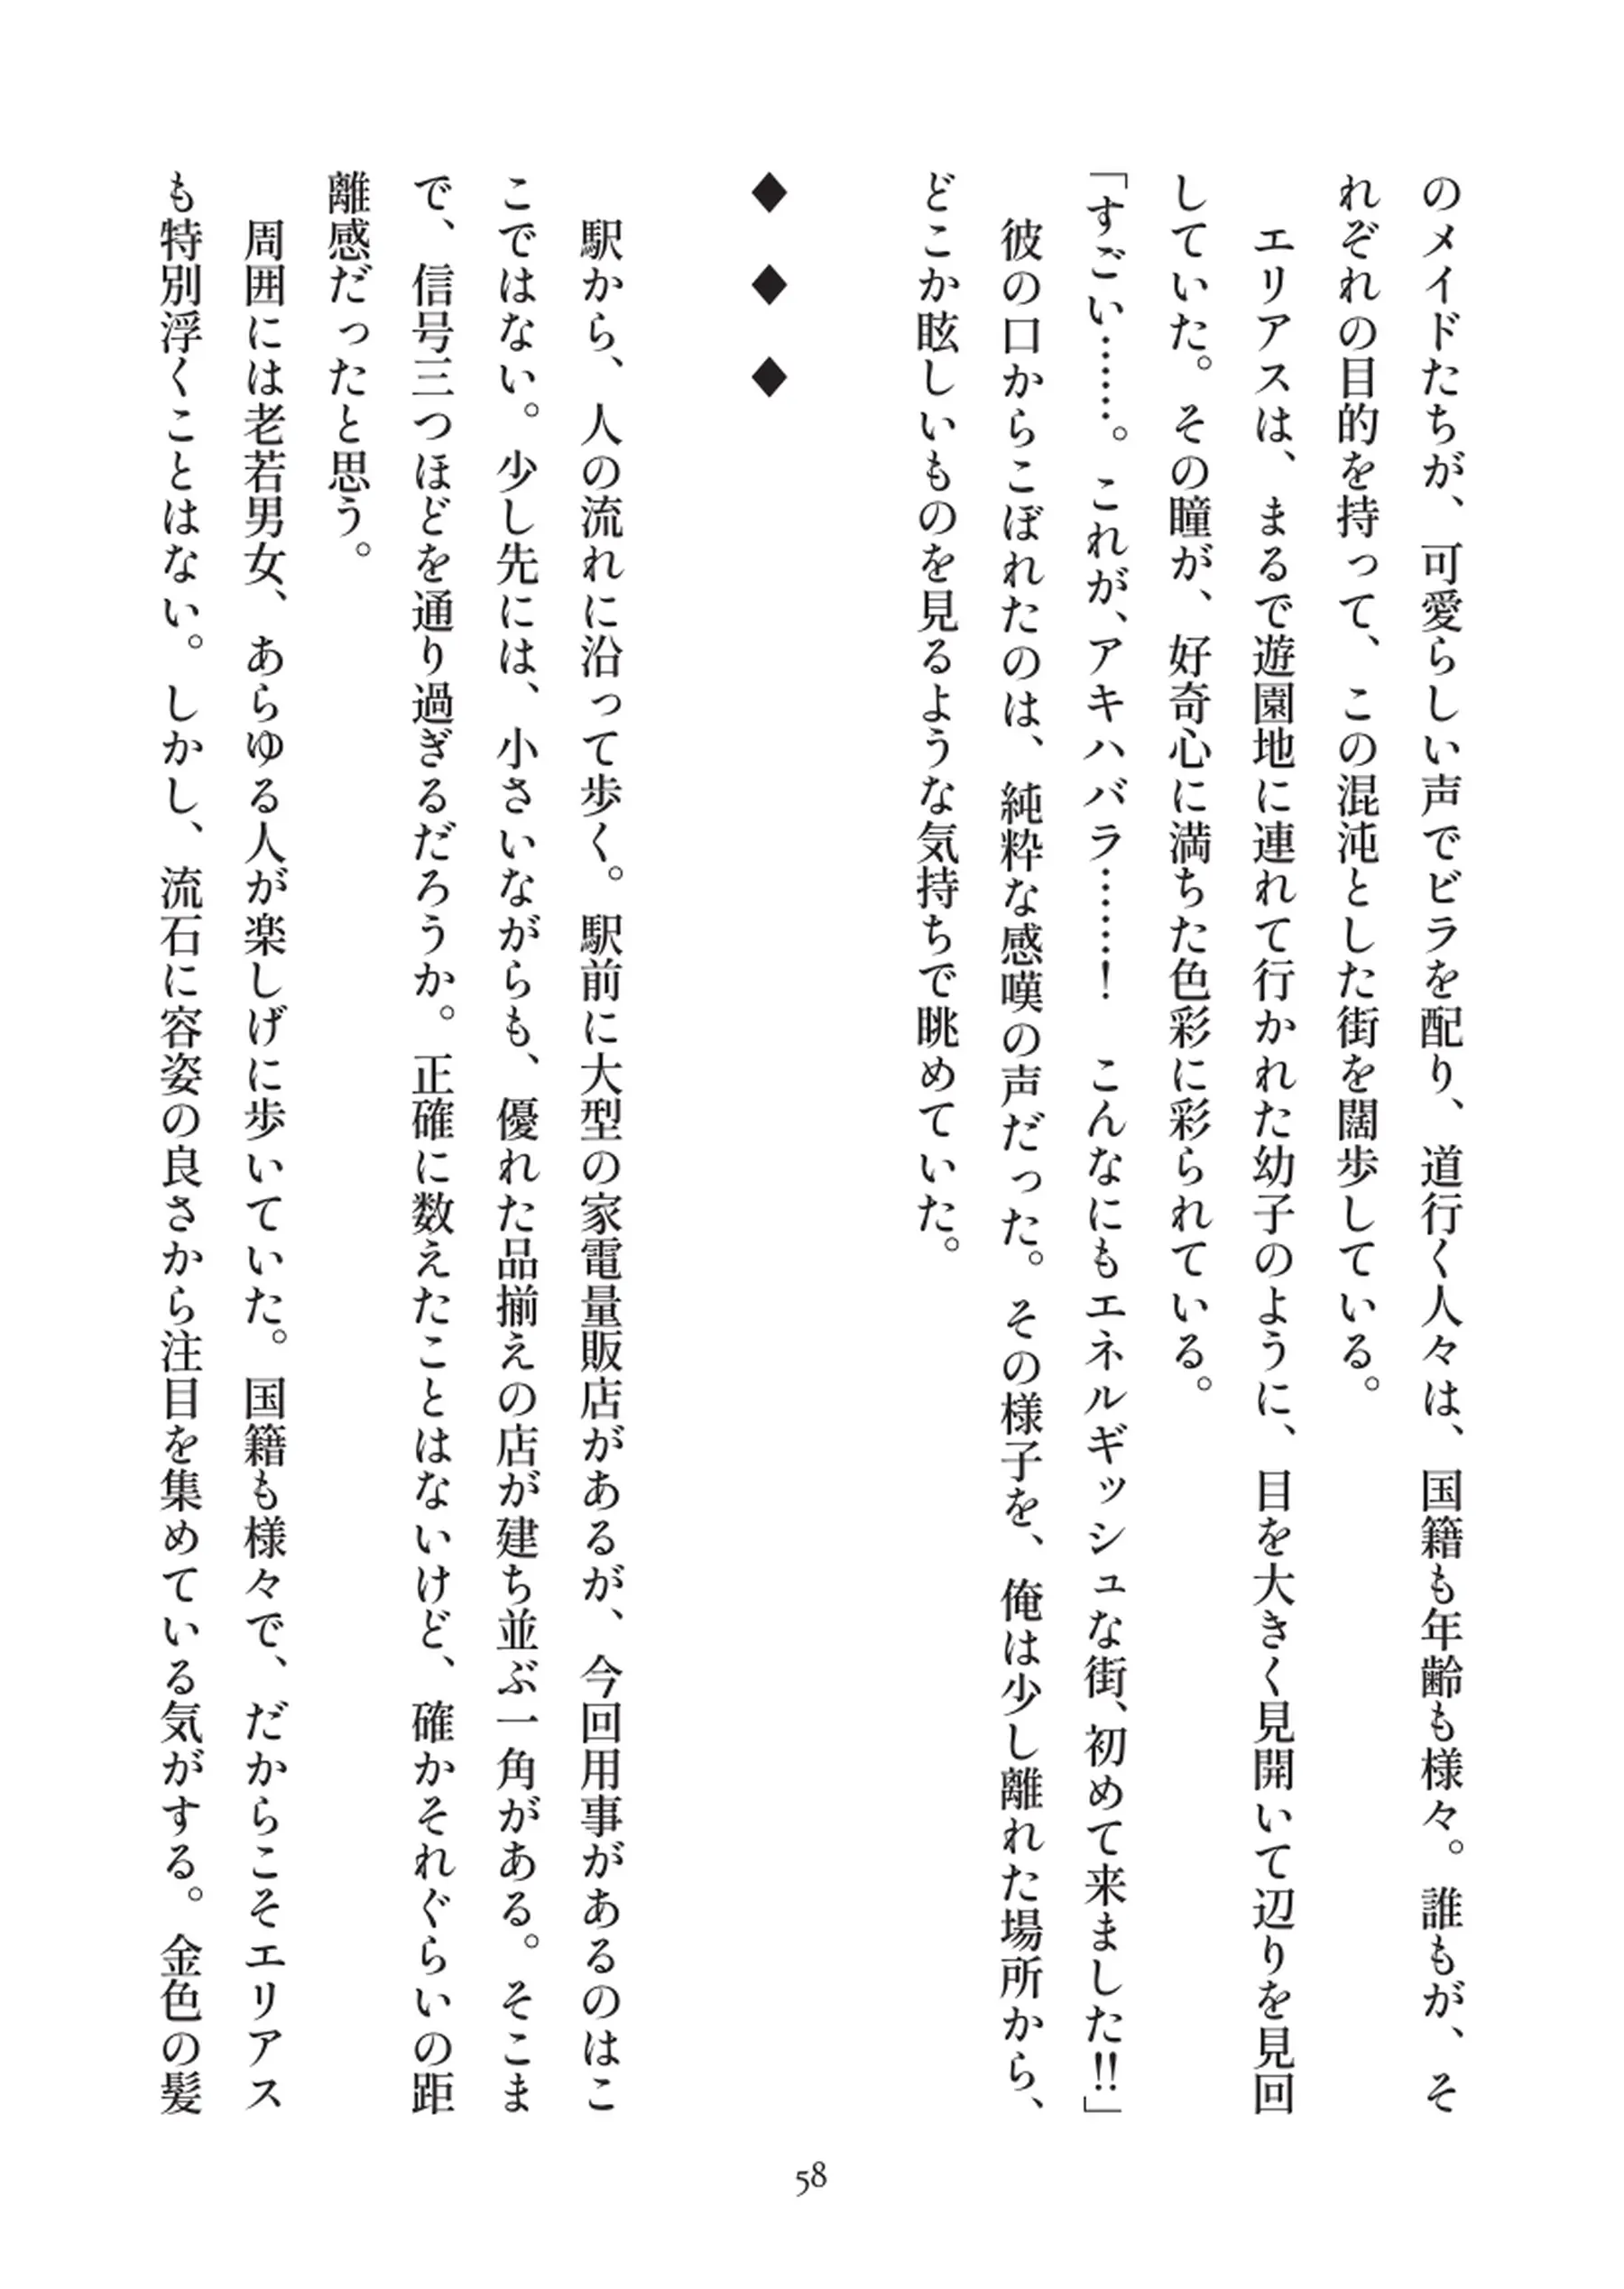 のメイドたちが、可愛らしい声でビラを配り、道行く人々は、国籍も年齢も様々。誰もが、そ
れぞれの目的を持って、この混沌とした街を闊歩している。
　エリアスは、まるで遊園地に連れて行かれた幼子のように、目を大きく見開いて辺りを見回
していた。その瞳が、好奇心に満ちた色彩に彩られている。
「すごい……。これが、アキハバラ……！　こんなにもエネルギッシュな街、初めて来ました‼」
　彼の口からこぼれたのは、純粋な感嘆の声だった。その様子を、俺は少し離れた場所から、
どこか眩しいものを見るような気持ちで眺めていた。
◆　◆　◆
　駅から、人の流れに沿って歩く。駅前に大型の家電量販店があるが、今回用事があるのはこ
こではない。少し先には、小さいながらも、優れた品揃えの店が建ち並ぶ一角がある。そこま
で、信号三つほどを通り過ぎるだろうか。正確に数えたことはないけど、確かそれぐらいの距
離感だったと思う。
　周囲には老若男女、あらゆる人が楽しげに歩いていた。国籍も様々で、だからこそエリアス
も特別浮くことはない。しかし、流石に容姿の良さから注目を集めている気がする。金色の髪
58